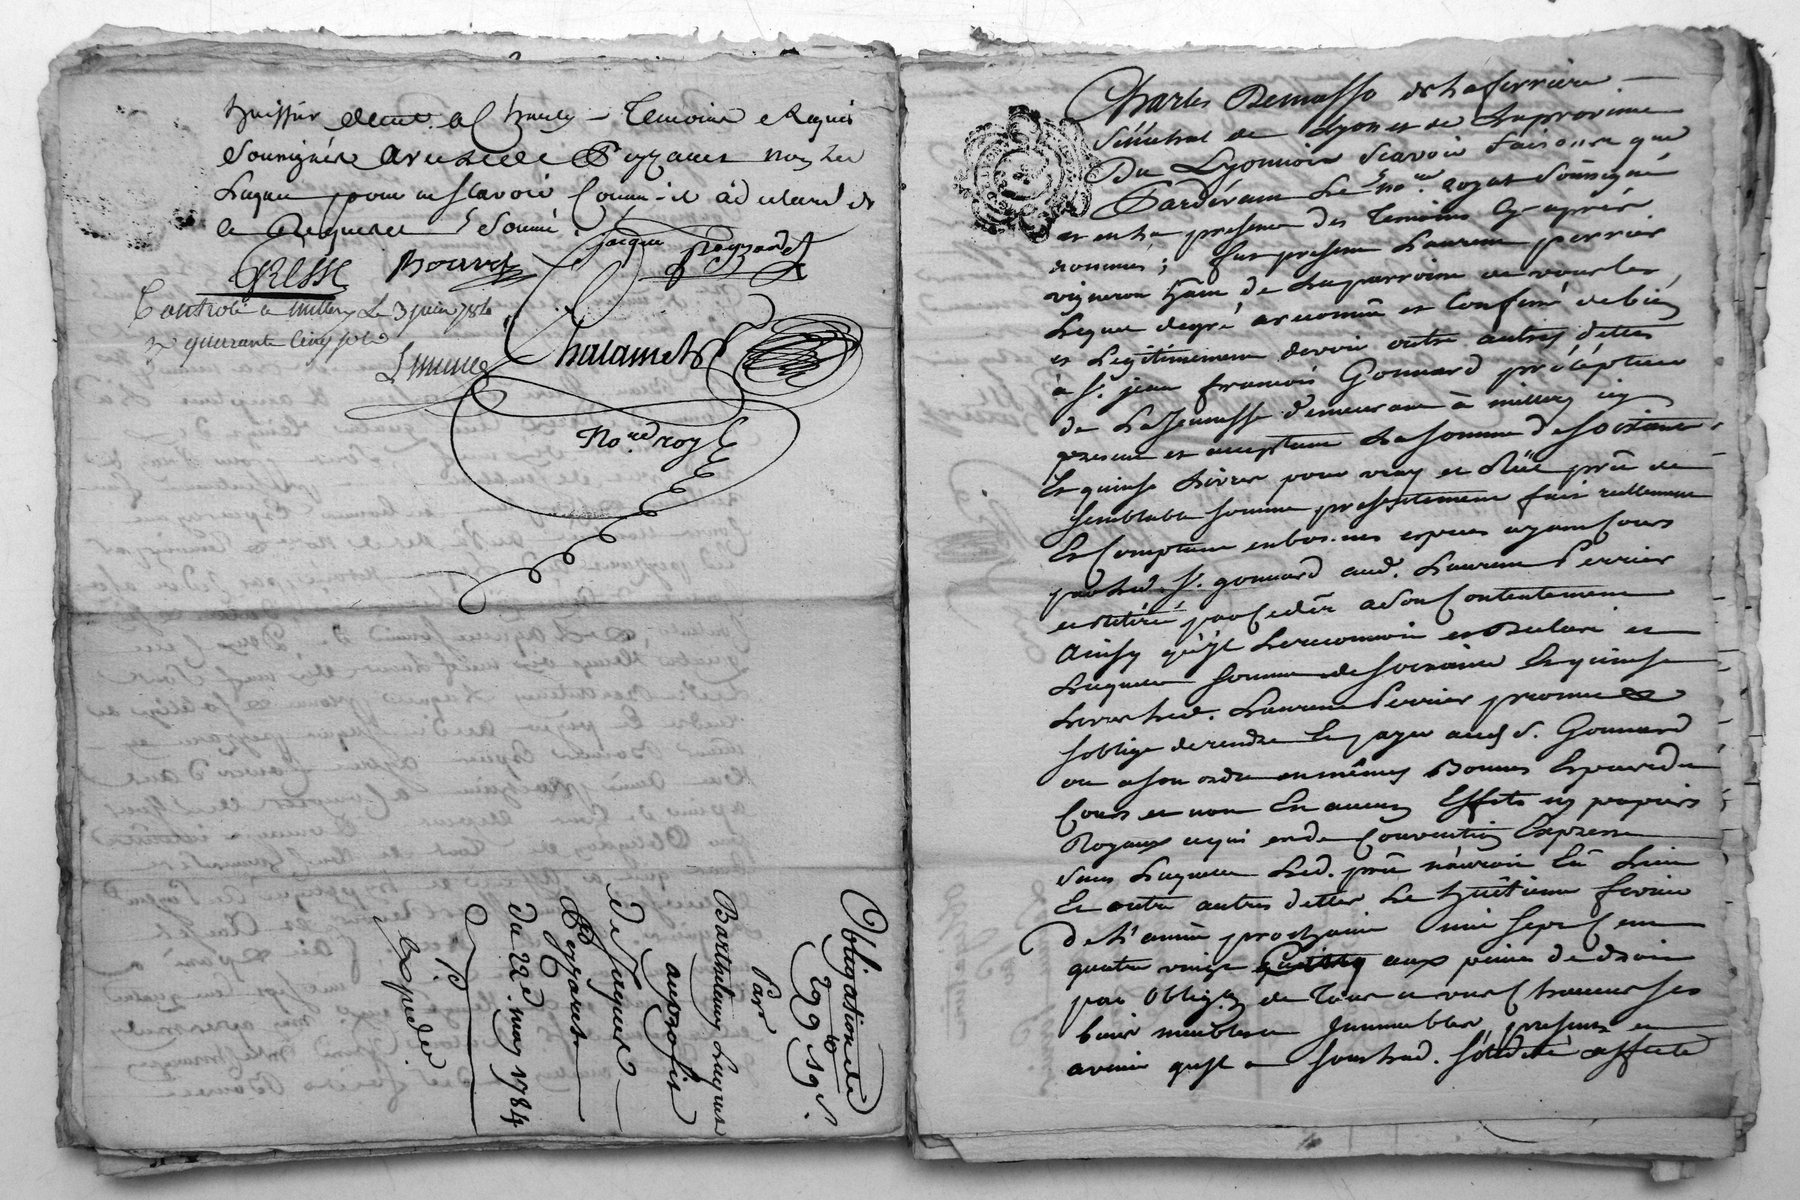 huissier demt. a Charly – Temoins Requis
Soussignés avec led. Peyzaret non led.
Luquet pour ne scavoir Comm-il a declaré de
ce Requis et Sommé
GRESSE Bouvet jacque Peyzaret
Controlé a millery Le 3 juin 1784
quarante cinq sols
Chalamel
No.re roy.l
Obligation de
299 19 s.
Par
Barthelemy Luquet
au profit
de Jacques
Peyzaret
Du 22e. may 1784
Expediée
Charles Demasso de La ferriere
Sénéchal de Lyon et de La province
Du Lyonnois Scavoir faisons que
Pardevant Le no.re royal Soussigné
et en la presence des temoins cy après
nommés ; fut present Laurent perrier
vigneron de La parroisse de vourles
Lequel de gré a reconnu et confessé debvoir
et Legitimement devoir outre autres dettes
à Sr. jean françois Gonnard précepteur
de La Jeunesse demeurant à millery icy
present et acceptant La somme de soixante
Et quinse Livres pour vray et réel prêt de
semblable somme presentement fait réellement
Et Comptant en bonnes especes ayant Cours
par led. Sr. gonnard aud. Laurent Perrier
et retiré par ce dër a son Contentement
Ainsy qu'il Le reconnoit et Declare et
Laquelle somme de soixante Et quinse
Livres led. Laurent Perrier promet et
s'oblige de rendre Et payer aud. S. Gonnard
ou a son ordre en mêmes Bonnes Especes du
Cours et non En aucuns Effets ny papiers
Royaux ce qui est de Convention Expresse
sans Laquelle Led. prêt n'auroit Eû Lieu
Et outre autres dettes Le huitieme fevrier
de L'année prochaine mil sept Cent
quatre vingt aux peines de droit
par oblig.on de tous et uns Chacuns ses
biens meubles et Immeubles presents et
avenir qu'il a soumis affecté